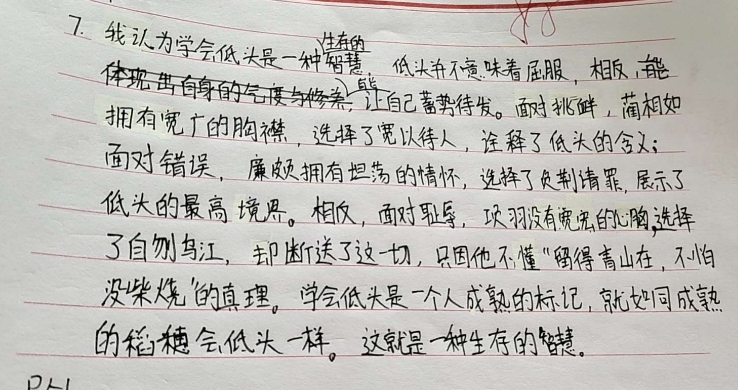 7. 我认为学会低头是一种生存的智慧 低头并不意味着屈服,相反,能
体现出自身的气度与修养,能让自己蓄势待发。面对挑衅,蔺相如
拥有宽广的胸襟,选择了宽以待人,诠释了低头的含义;
面对错误,廉颇拥有坦荡的情怀,选择了负荆请罪,展示了
低头的最高境界。相反,面对耻辱,项羽没有宽宏的心胸,选择
了自刎乌江,却断送了这一切,只因他不懂“留得青山在,不怕
没柴烧”的真理。学会低头是一个人成熟的标记,就如同成熟
的稻穗会低头一样。这就是一种生存的智慧。